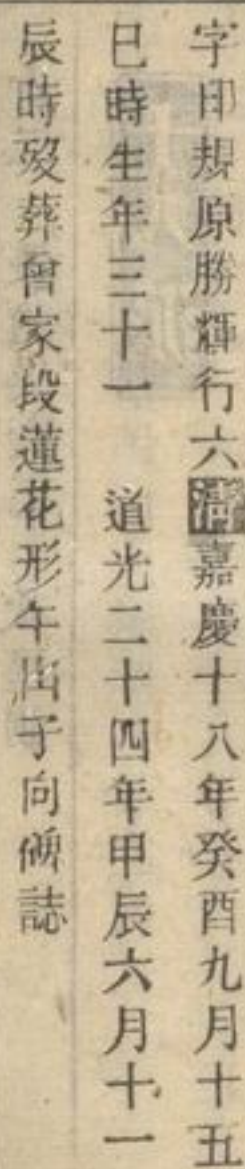 字印規原勝輝行六清嘉慶十八年癸酉九月十五
巳時生年三十一　道光二十四年甲辰六月十一
辰時歿葬曾家段蓮花形午山子向碑誌